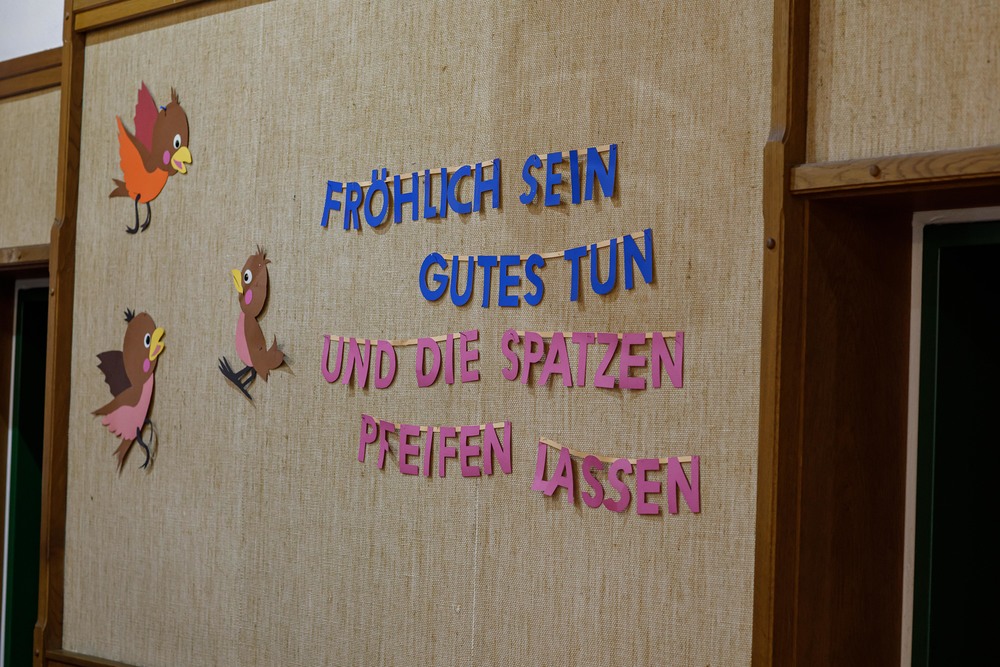 FRÖHLICH SEIN
GUTES TUN
UND DIE SPATZEN
PFEIFEN LASSEN